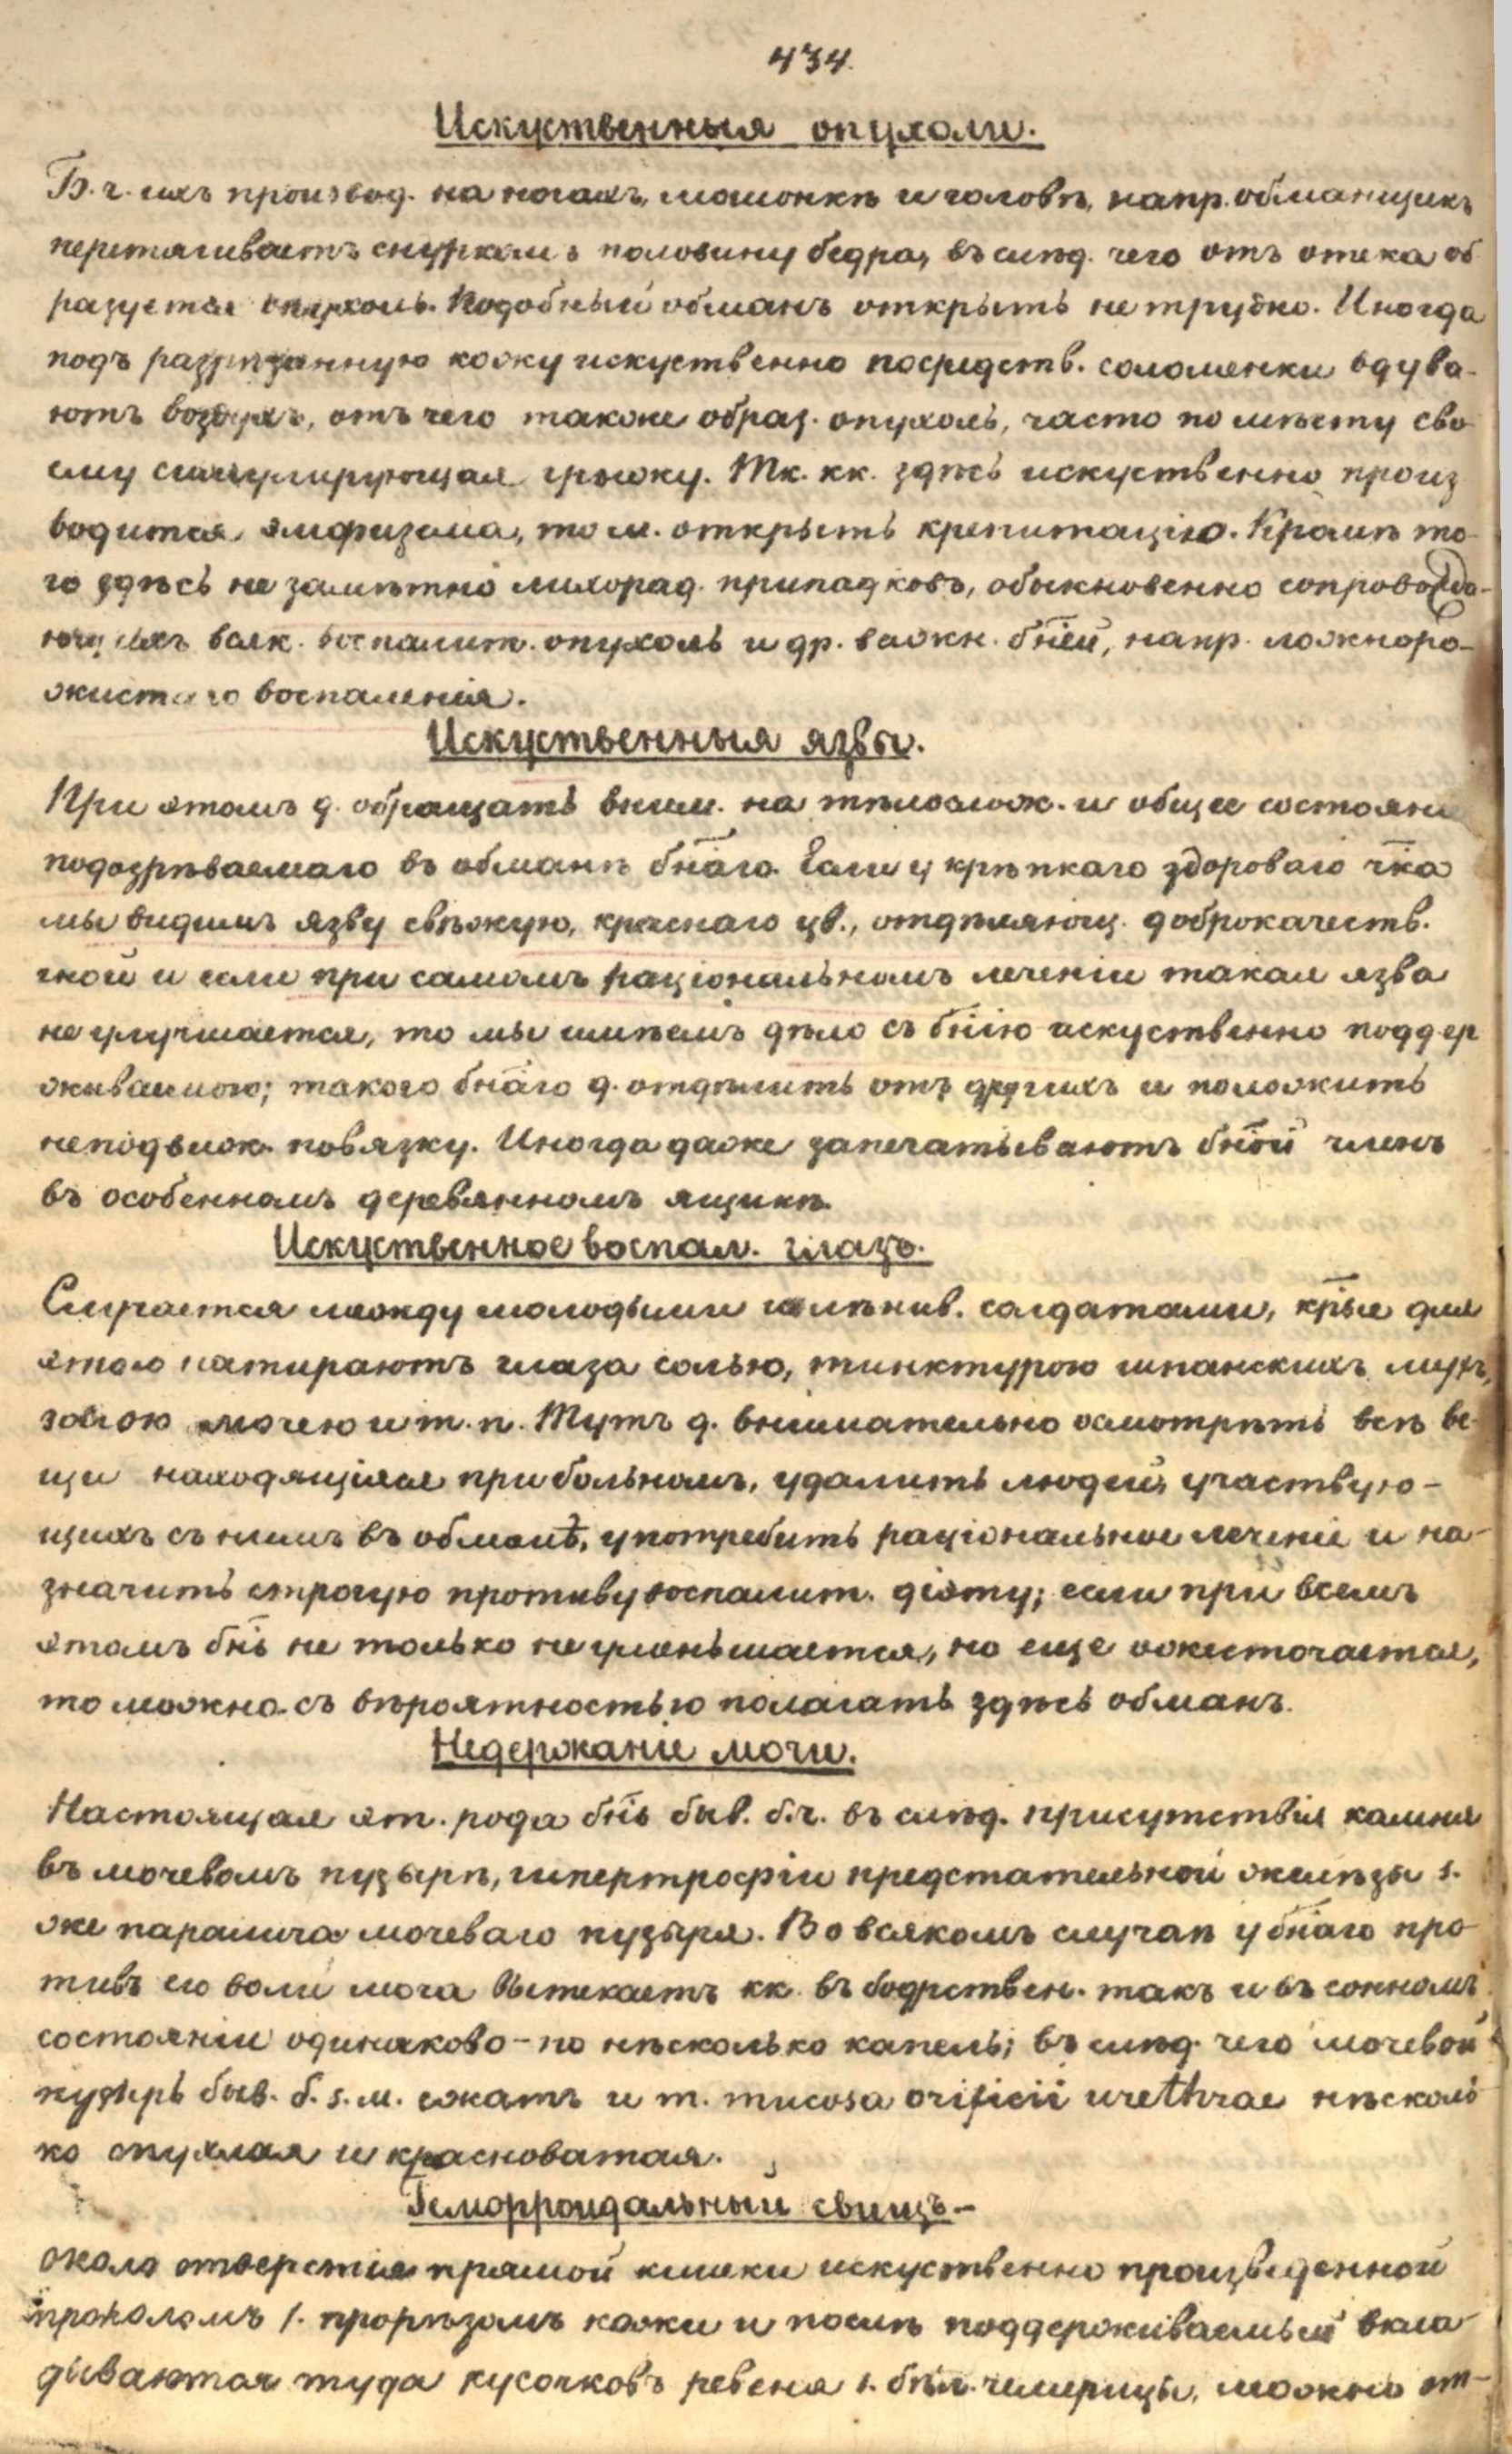 434.
Искуственныя опухоли.
Б. ч. ихъ производ. на ногахъ, мошонкѣ и головѣ, напр. обманщикъ
перетягиваетъ снуркомъ половину бедра, въ слѣд. чего отъ отека об
разуется опухоль. Подобный обманъ открыть не трудно. Иногда
подъ разрѣзанную кожу искуственно посредств. соломенки вдува-
ютъ воздухъ, отъ чего также образ. опухоль, часто по мѣсту сво
ему симулирующая грыжу. Тк. кк. здѣсь искуственно произ
водится эмфизема, то м. открыть крепитацію. Кромѣ то-
го здѣсь не замѣтно лихорад. припадковъ, обыкновенно сопровожда-
ющихъ всяк. воспалит. опухоль и др. важн. бнѣй, напр. ложноро-
жистаго воспаленія.
Искуственныя язвы.
При этомъ д. обращать вним. на тѣлослож. и общее состояніе
подозрѣваемаго въ обманѣ бнаго. Если у крѣпкаго здороваго чка
мы видимъ язву свѣжую, краснаго цв., отдѣляющ. доброкачеств.
гной и если при самомъ раціональномъ леченіи такая язва
не улучшается, то мы имѣемъ дѣло съ бнію искуственно поддер
живаемою; такого бнаго д. отдѣлить отъ другихъ и положить
неподвиж. повязку. Иногда даже запечатываютъ бной членъ
въ особенномъ деревянномъ ящикѣ.
Искуственное воспал. глазъ.
Случается между молодыми лѣнив. солдатами, крые для
этого натираютъ глаза солью, тинктурою шпанскихъ мухъ,
золою мочею и т. п. Тутъ д. внимательно осмотрѣть всѣ ве-
щи находящіяся при больномъ, удалить людей, участвую-
щихъ съ нимъ въ обманѣ, употребить раціональное леченіе и на-
значить строгую противувоспалит. діэту; если при всемъ
этомъ бнь не только не уменьшается, но еще ожесточается,
то можно съ вѣроятностью полагать здѣсь обманъ.
Недержаніе мочи.
Настоящая эт. рода бнь быв. б. ч. въ слѣд. присутствія камня
въ мочевомъ пузырѣ, гипертрофіи предстательной желѣзы s.
же паралича мочеваго пузыря. Во всякомъ случаѣ у бнаго про
тивъ его воли моча вытекаетъ кк. въ бодрствен. такъ и въ сонномъ
состояніи одинаково - по нѣсколько капель; въ слѣд. чего мочевой
пузырь быв. б. s. м. сжатъ и т. mucosa orificii urethrae нѣсколь
ко опухлая и красноватая.
Геморроидальный свищъ -
около отверстія прямой кишки искуственно произведенной
проколомъ s. прорѣзомъ кожи и послѣ поддерживаемый вкла
дываются туда кусочковъ ревеня s. бѣл. чемерицы, можно от-